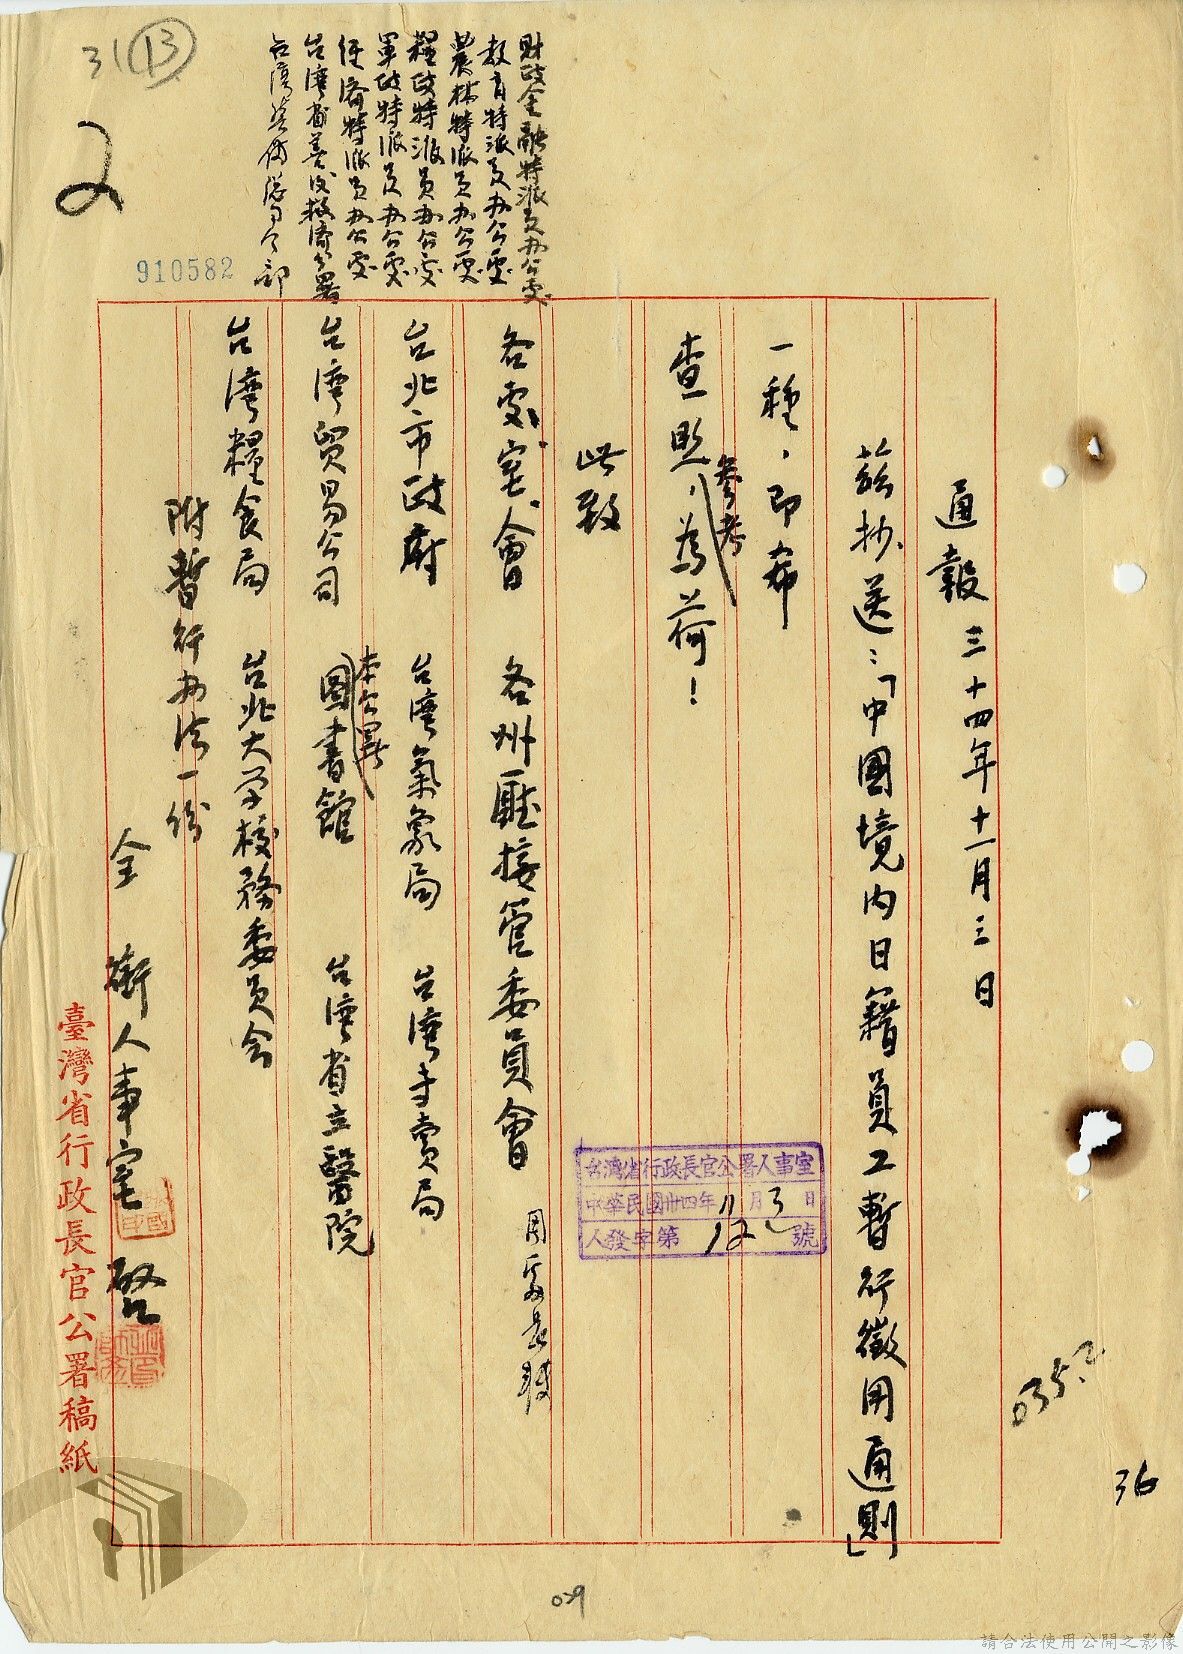 31 13
2
910582
財政金融特派員办公處
教育特派員办公處
農林特派員办公處
糧政特派員办公處
軍政特派員办公處
經濟特派員办公處
台灣省善後救濟分署
台灣警備總司令部
通報 三十四年十一月三日
茲抄送：「中國境內日籍員工暫行徵用通則」
一種，即希
參考
查照，為荷！
此致
各處、室、會 各州廳接管委員會 周委員長
台北市政府 台灣氣象局 台灣專賣局
本公署
台灣貿易公司 圖書館 台灣省立醫院
台灣糧食局 台北大学校務委員会
附暫行办法一份
全銜人事室 啓
台灣省行政長官公署人事室
中華民國卅四年11月3日
人發字第 號
臺灣省行政長官公署稿紙
035.2
36
029
請合法使用公開之影像